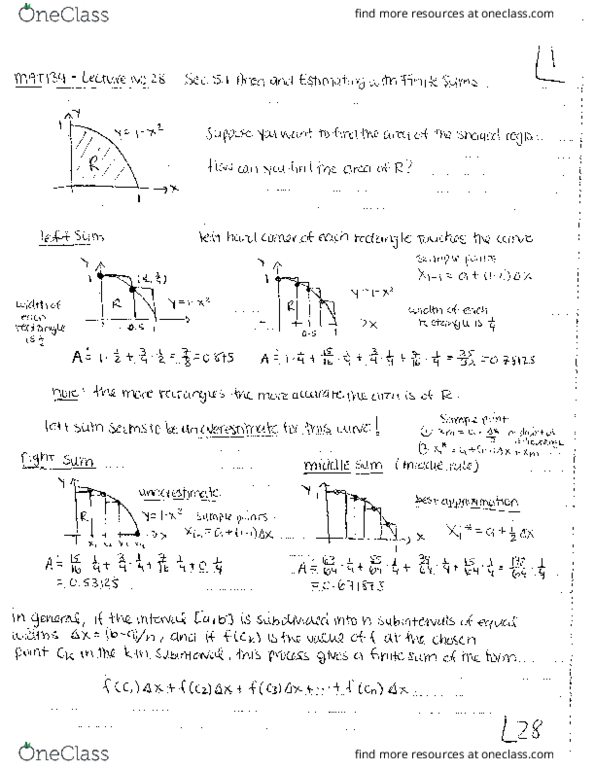 OneClass
find more resources at oneclass.com
L1
MAT134 - Lecture No: 28 Sec. 5.1 Area and Estimating with Finite Sums
y
1
y=1-x²
R
x
1
Suppose you want to find the area of the shaded region
How can you find the area of R?
left sum
left hand corner of each rectangle touches the curve
sample points
width of each rectangle is ½
y
1
R
y=1-x²
0.5
1
y
1
R
y=1-x²
0.5
1
x
width of each rectangle is ¼
A ≐ 1·½ + ¾·½ = ⅞ = 0.875
A ≐ 1·¼ + 15/16·¼ + ¾·¼ + 7/16·¼ = 25/32 = 0.78125
note: the more rectangles the more accurate the area is of R.
left sum seems to be an overestimate for this curve!
sample point
right sum
middle sum (middle rule)
underestimate
y=1-x²
sample points
best approximation
R
x
y
1
x
A ≐ 15/16·¼ + ¾·¼ + 7/16·¼ + 0·¼
= 0.53125
A ≐ 63/64·¼ + 55/64·¼ + 39/64·¼ + 15/64·¼ = 172/64·¼
= 0.671875
in general, if the interval [a,b] is subdivided into n subintervals of equal
widths Δx = (b-a)/n, and if f(Ck) is the value of f at the chosen
point Ck in the kth subinterval, this process gives a finite sum of the form
f(C1)Δx + f(C2)Δx + f(C3)Δx + ... + f(Cn)Δx
L28
OneClass
find more resources at oneclass.com